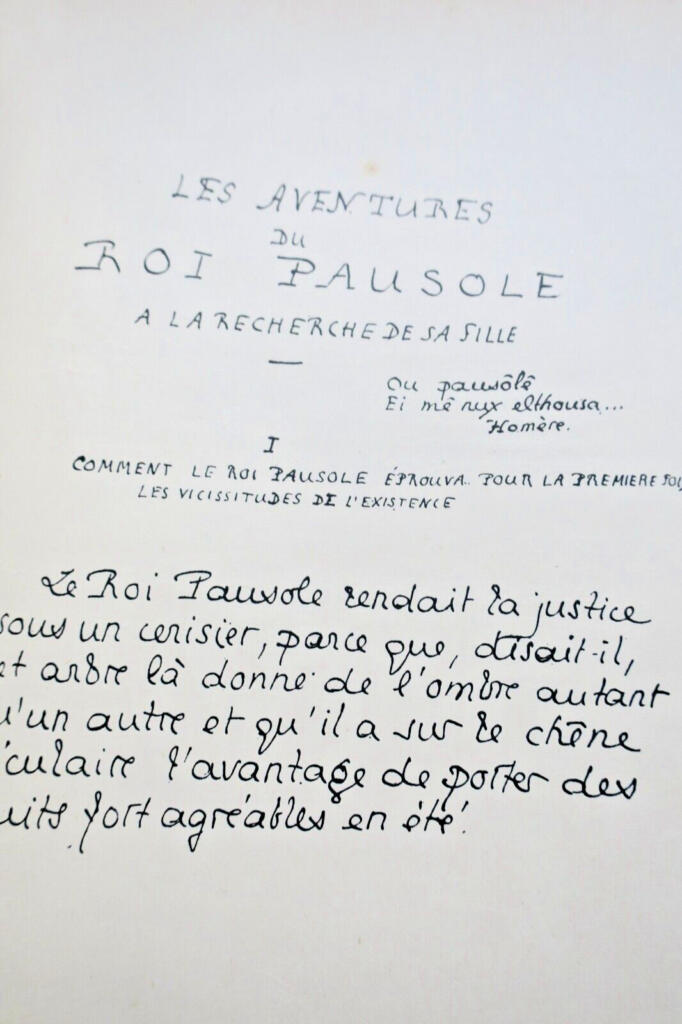 LES AVENTURES
DU
ROI PAUSOLE
A LA RECHERCHE DE SA FILLE
—
Ou pausôlê
Ei mê nux elthousa...
Homère.
I
COMMENT LE ROI PAUSOLE ÉPROUVA.. POUR LA PREMIERE FOI
LES VICISSITUDES DE L'EXISTENCE
Le Roi Pausole rendait la justice
sous un cerisier, parce que, disait-il,
et arbre là donne de l'ombre autant
u'un autre et qu'il a sur le chêne
culaire l'avantage de porter des
uits fort agréables en été.